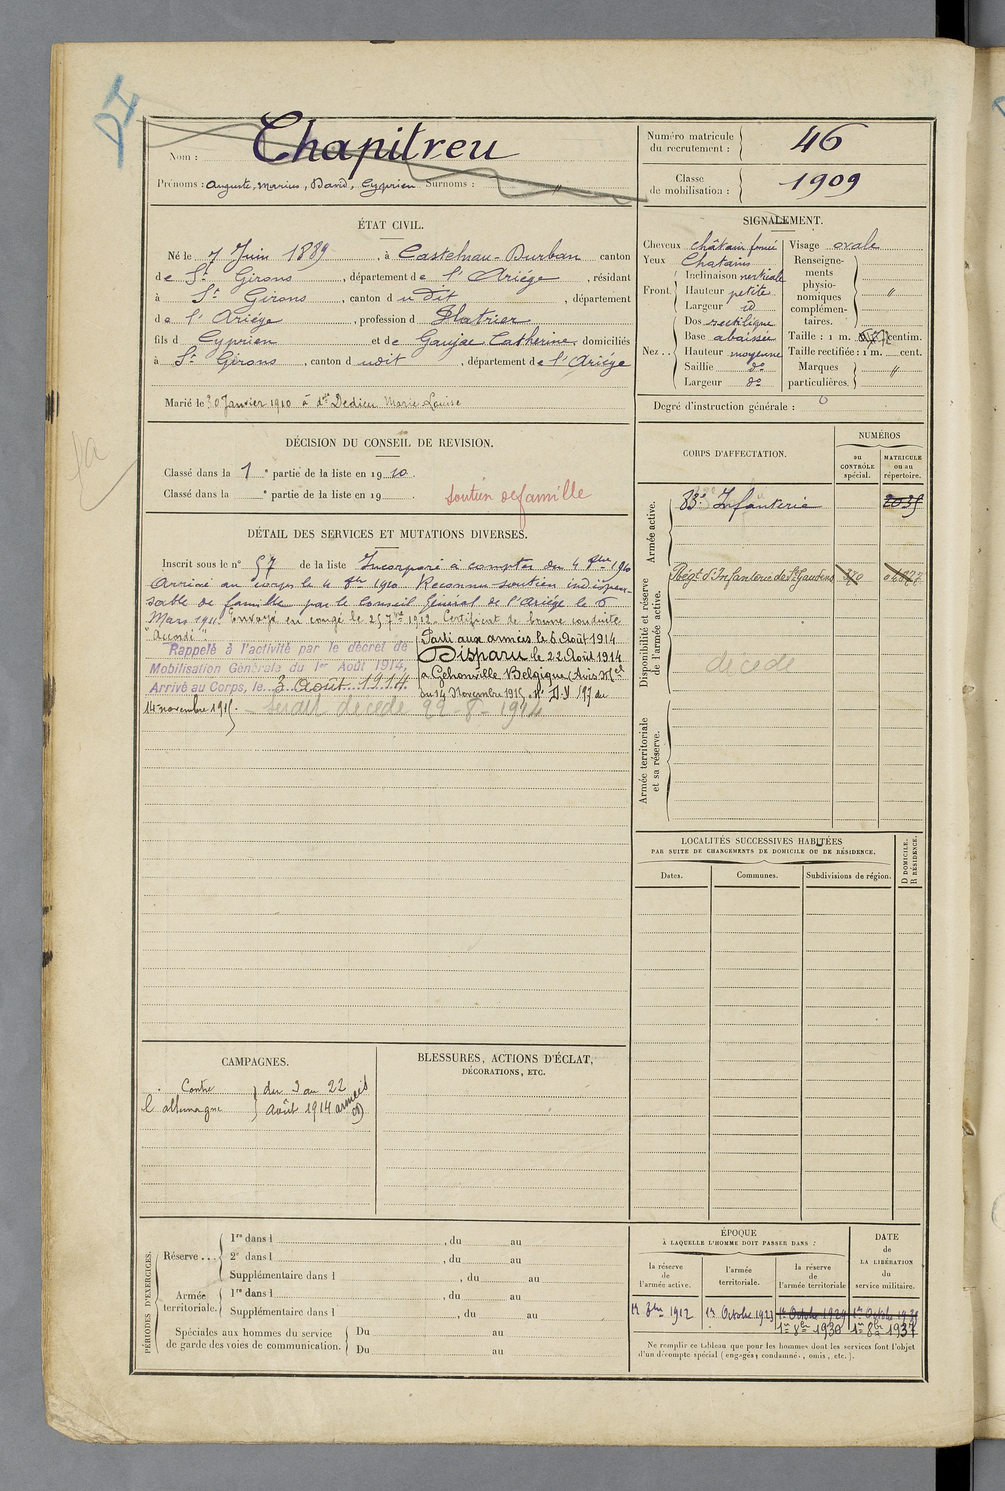 DI
Nom : Chapitreu
Prénoms : Auguste, Marius, David, Cyprien Surnoms : "
Numéro matricule du recrutement : 46
Classe de mobilisation : 1909
ÉTAT CIVIL.
Né le 7 Juin 1889, à Castelnau-Durban canton
de St Girons, département de l'Ariége, résidant
à St Girons, canton d udit, département
de l'Ariége, profession d Platrier
fils d Cyprien et de Gaujac Catherine domiciliés
à St Girons, canton d udit, département de l'Ariége
Marié le 30 Janvier 1910 à dlle Dedieu Marie Louise
SIGNALEMENT.
Cheveux châtain foncé
Yeux Chatains
Front. Inclinaison verticale
Hauteur petite
Largeur id
Nez .. Dos rectiligne
Base abaissée
Hauteur moyenne
Saillie do
Largeur do
Visage ovale
Renseignements physionomiques complémentaires. "
Taille : 1 m. centim.
Taille rectifiée : 1 m. cent.
Marques particulières. "
Degré d'instruction générale :
DÉCISION DU CONSEIL DE REVISION.
Classé dans la 1e partie de la liste en 1910.
Classé dans la e partie de la liste en 19 .
soutien de famille
DÉTAIL DES SERVICES ET MUTATIONS DIVERSES.
Inscrit sous le n° 57 de la liste Incorporé à compter du 4 8bre 1910
Arrivé au corps le 4 8bre 1910. Reconnu soutien indispen-
sable de famille par le Conseil Général de l'Ariége le 6
Mars 1911. Envoyé en congé le 25 7bre 1912. Certificat de bonne conduite
"Accordé".
Rappelé à l'activité par le décret de
Mobilisation Générale du 1er Août 1914,
Arrivé au Corps, le 3 Août 1914.
Parti aux armées le 6 Août 1914
Disparu le 22 Août 1914
a Gehonville Belgique (Avis Mel
du 14 Novembre 1915 No D.I. 197 du
14 novembre 1915.
Serait décédé 22-8-1914
CORPS D'AFFECTATION.
NUMÉROS
au CONTRÔLE spécial.
MATRICULE ou au répertoire.
Armée active.
83e Infanterie 2035
Disponibilité et réserve de l'armée active.
Régt d'Infanterie de St Gaudens
décédé
Armée territoriale et sa réserve.
LOCALITÉS SUCCESSIVES HABITÉES
PAR SUITE DE CHANGEMENTS DE DOMICILE OU DE RÉSIDENCE.
Dates. Communes. Subdivisions de région.
D DOMICILE.
R RÉSIDENCE.
CAMPAGNES.
Contre l'allemagne
du 3 au 22
Août 1914 armées
BLESSURES, ACTIONS D'ÉCLAT,
DÉCORATIONS, ETC.
PÉRIODES D'EXERCICES.
Réserve ...
1re dans l , du au
2e dans l , du au
Supplémentaire dans l , du au
Armée territoriale.
1re dans l , du au
Supplémentaire dans l , du au
Spéciales aux hommes du service de garde des voies de communication.
Du au
Du au
ÉPOQUE
À LAQUELLE L'HOMME DOIT PASSER DANS :
la réserve de l'armée active.
l'armée territoriale.
la réserve de l'armée territoriale
DATE de LA LIBÉRATION du service militaire.
1er 8bre 1912
1er Octobre 1923
1er Octobre 1929
1er 8bre 1930
1er 8bre 1937
Ne remplir ce tableau que pour les hommes dont les services font l'objet
d'un décompte spécial (engagés, condamnés, omis, etc.).